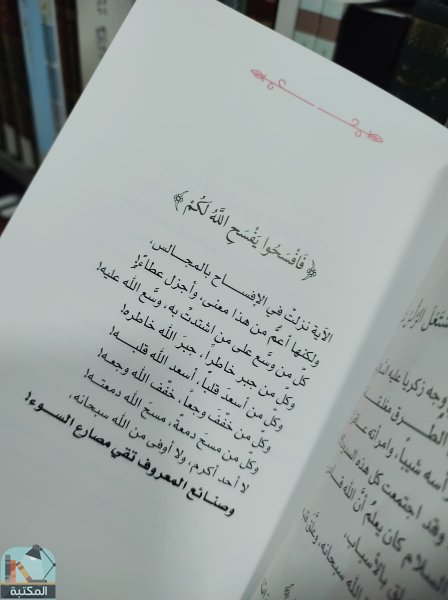 ﴿فَافْسَحُوا يَفْسَحِ اللَّهُ لَكُمْ﴾
الآية نزلتْ في الإفساح بالمجالس،
ولكنها أعمّ من هذا معنى، وأجزل عطاءً!
كلّ من وسَّع على من اشتدتْ به، وسَّع الله عليه!
وكل من جبر خاطراً، جبَر الله خاطره!
وكل من أسعدَ قلباً، أسعد الله قلبه!
وكل من خفَّف وجعاً، خفّف الله وجعه!
وكل من مسح دمعةً، مسحَ الله دمعته!
لا أحد أكرم، ولا أوفى من الله سبحانه،
وصنائع المعروف تقي مصارع السوء!
وجه زكريا عليه
الطرق مغلقة
رأسه شيباً، وامرأته
وقد اجتمعت كل هذه
السلام كان يعلمُ أنَّ الله
بالأسباب،
الله سبحانه،
المكتبة